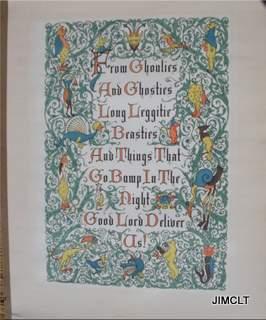 From Ghoulies
And Ghosties
Long Leggitie
Beasties
And Things That
Go Bump In The
Night
Good Lord Deliver
Us!
JIMCLT